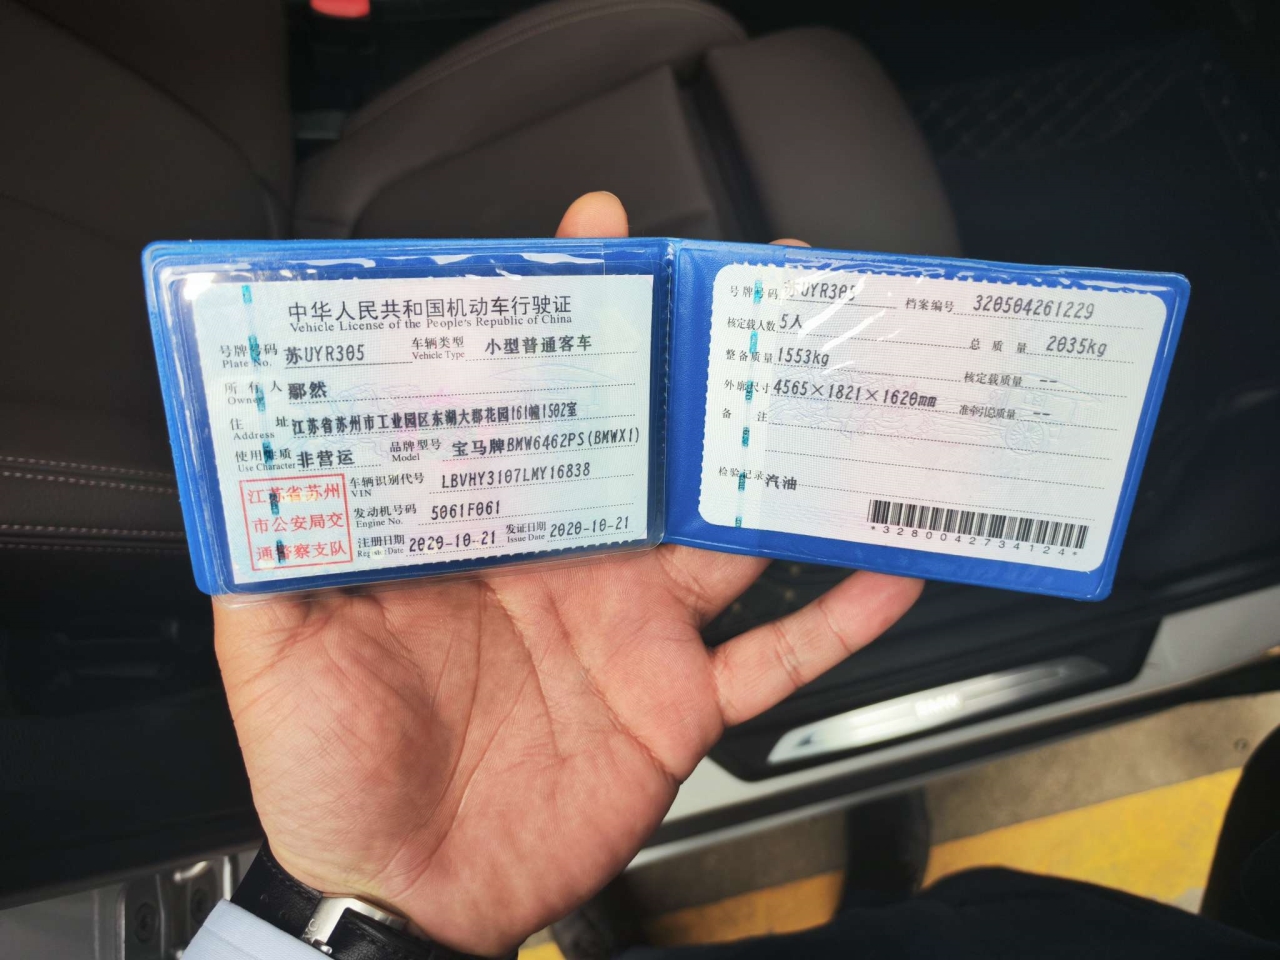 中华人民共和国机动车行驶证
Vehicle License of the People's Republic of China
号牌号码 苏UYR305 车辆类型 小型普通客车
Plate No. Vehicle Type
所有人 鄢然
Owner
住址 江苏省苏州市工业园区东湖大郡花园161幢1502室
Address
使用性质 非营运 品牌型号 宝马牌BMW6462PS(BMWX1)
Use Character Model
江苏省苏州
市公安局交
通警察支队
车辆识别代号 LBVHY3107LMY16838
VIN
发动机号码 5061F061
Engine No.
注册日期 2020-10-21 发证日期 2020-10-21
Register Date Issue Date
号牌号码 苏UYR305 档案编号 320504261229
核定载人数 5人 总质量 2035kg
整备质量 1553kg 核定载质量 --
外廓尺寸 4565×1821×1620mm 准牵引总质量 --
备注
检验记录 汽油
*3280042734124*